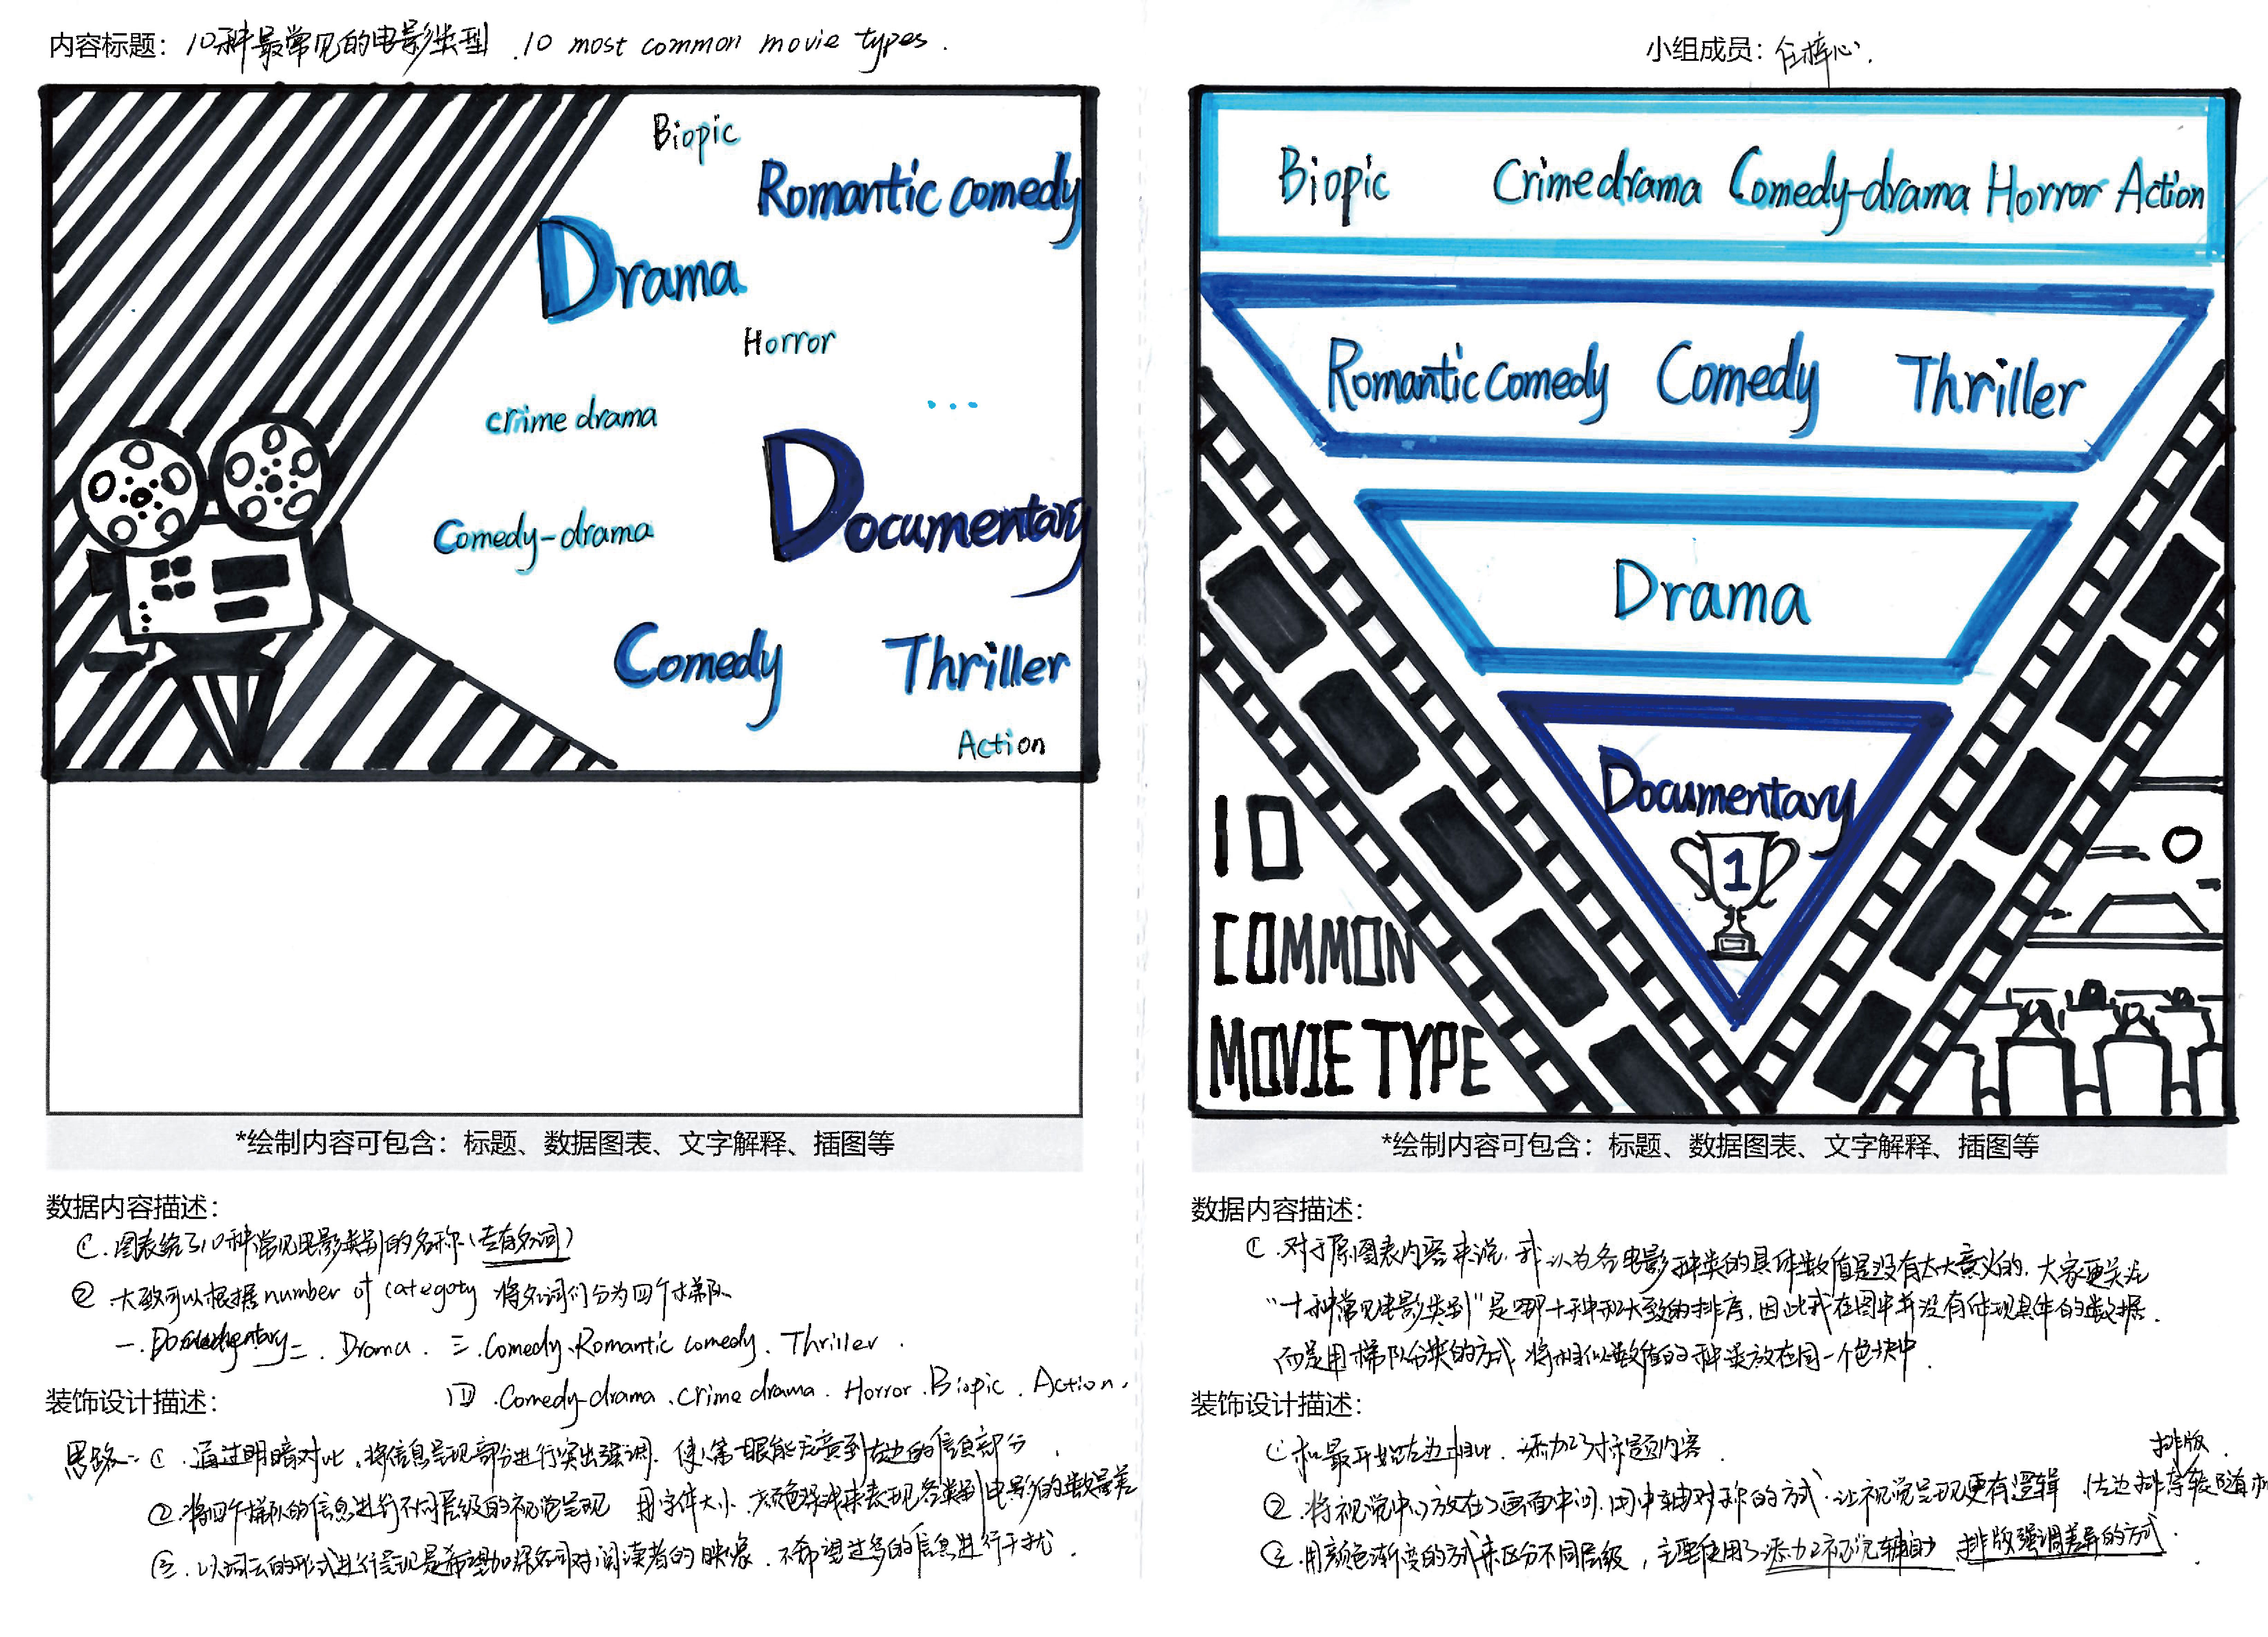 内容标题：10种最常见的电影类型 .10 most common movie types.
小组成员：任梓心.
Biopic
Romantic comedy
Drama
Horror
...
crime drama
Documentary
Comedy-drama
Comedy
Thriller
Action
*绘制内容可包含：标题、数据图表、文字解释、插图等
数据内容描述：
①.图表给了10种常见电影类别的名称（专有名词）
②.大致可以根据number of categoty 将名词们分为四个梯队
一.Documentary 二.Drama. 三.Comedy、Romantic comedy. Thriller.
四.Comedy-drama、crime drama. Horror.Biopic. Action.
装饰设计描述：
思路：①.通过明暗对比，将信息呈现部分进行突出强调.使人第一眼能注意到右边的信息部分.
②.将四个梯队的信息进行不同层级的视觉呈现 用字体大小、颜色深浅来表现各类别电影的数量差
③.以词云的形式进行呈现是希望加深名词对阅读者的映像.不希望过多的信息进行干扰.
Biopic Crime drama Comedy-drama Horror Action
Romantic comedy Comedy Thriller
Drama
Documentary
1
10
COMMON
MOVIE TYPE
*绘制内容可包含：标题、数据图表、文字解释、插图等
数据内容描述：
①.对于原图表内容来说.我认为各电影种类的具体数值是没有太大意义的.大家更关心
“十种常见电影类别”是哪十种和大致的排序.因此我在图中并没有体现具体的数据.
而是用梯队分类的方式 将相似数值的种类放在同一个色块中.
装饰设计描述：
①.和最开始左边相比.添加了标题内容 排版.
②.将视觉中心放在了画面中间.用中轴对称的方式.让视觉呈现更有逻辑（左边排序较随
③.用颜色渐变的方式来区分不同层级，主要使用了添加视觉辅助 排版强调差异的方式.